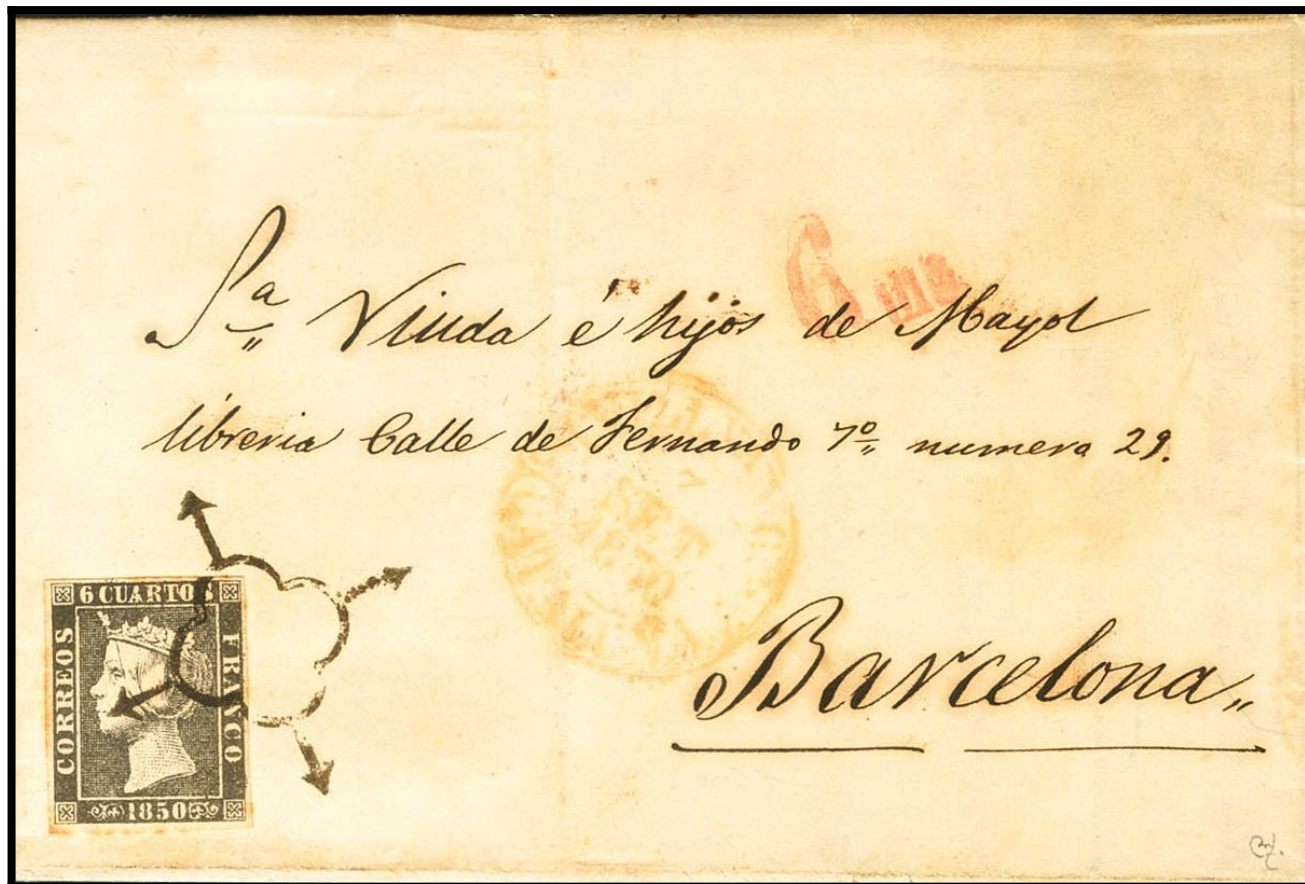 6
Sª Viuda é hijos de Mayol
libreria Calle de Fernando 7º numero 29.
SET
1850
6 CUARTOS
CORREOS
FRANCO
1850
Barcelona